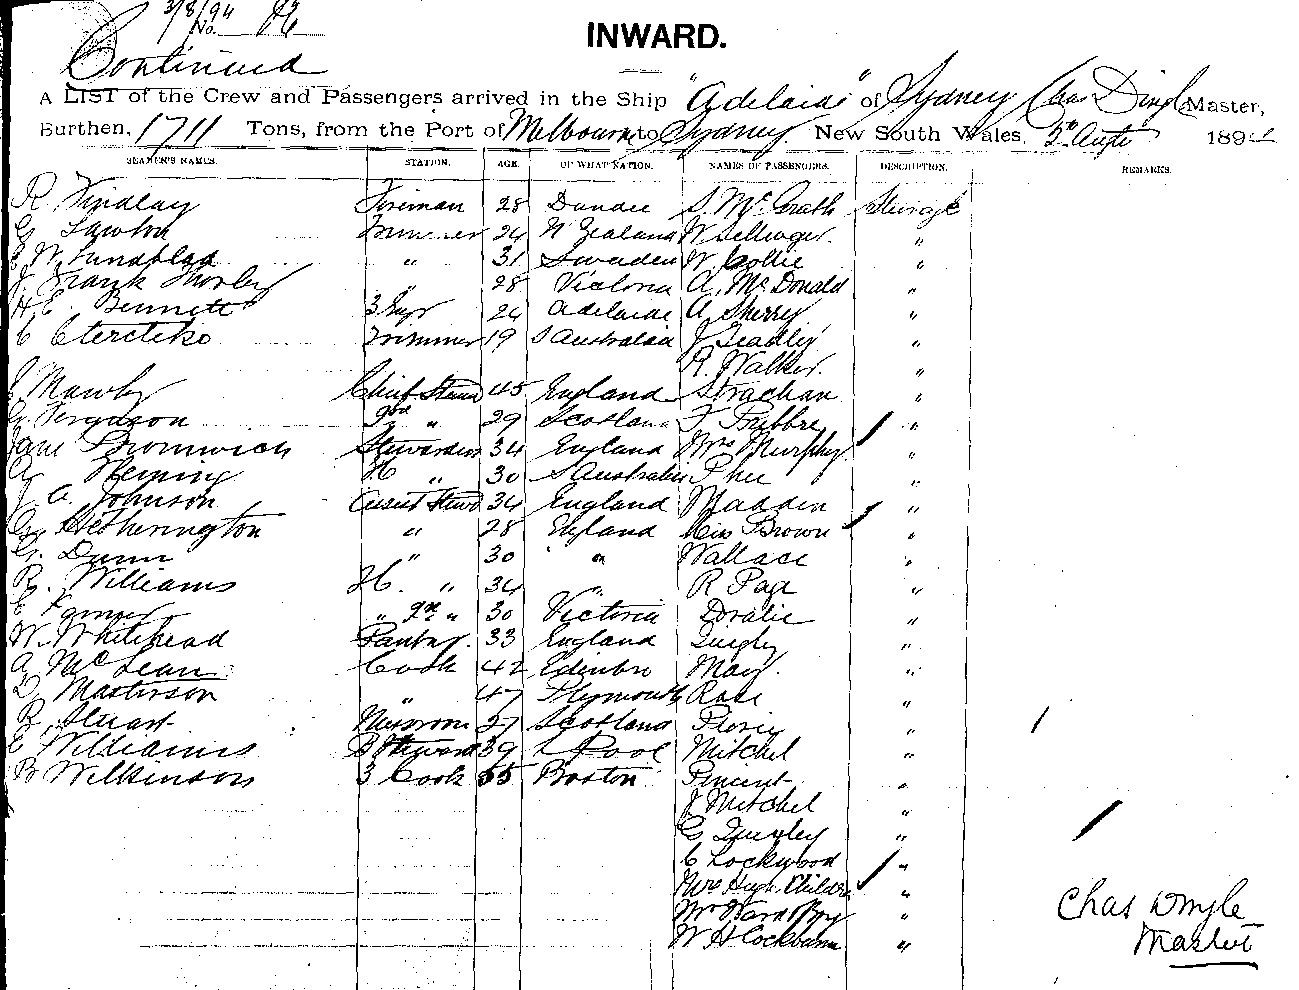 3/8/94 No. 16
INWARD.
Continued
A LIST of the Crew and Passengers arrived in the Ship "Adelaide" of Sydney Chas Dingle Master,
Burthen, 1711 Tons, from the Port of Melbourne to Sydney New South Wales, 189
SEAMEN'S NAMES. STATION. AGE. OF WHAT NATION. NAMES OF PASSENGERS. DESCRIPTION. REMARKS.
R Findlay Fireman 28 Dundee S. McGrath Steerage
G Lawton Trimmer 24 N Zealand W Sellinger. "
E W Lundblad " 31 Sweden W Collie "
J Frank Thorley " 28 Victoria A. McDonald "
H. E. Bennett 3 Engr 24 Adelaide A Sherry "
C 19 S Australia J "
R. Walker. "
J Mawby Chief Stewd 45 England Strachan "
G Ferguson 2nd " 29 Scotland F "
Jane Bromwich Stewardess 34 England Mrs Murphy "
Fleming " 30 S Australia "
J. A. Johnson Assist Stewd 34 England Madden "
Geo Hetherington " 28 England Miss Brown "
G. Dunn " 30 " Wallace "
B. Williams " 34 " R Page "
E " " 30 Victoria "
W. Whitehead Pantry. 33 England Quigley "
A McLean Cook 42 Edinbro May "
D Masterson " 47 Plymouth Rose "
B. Stuart Messroom 27 Scotland "
E Williams B Steward 39 L Pool Mitchel "
B Wilkinson 3 Cook 55 Boston "
J Mitchel "
G Quigley "
C Lockwood "
Mrs Hugh Childrn "
Ward Boy "
W H Cockburn "
Chas Dingle
Master